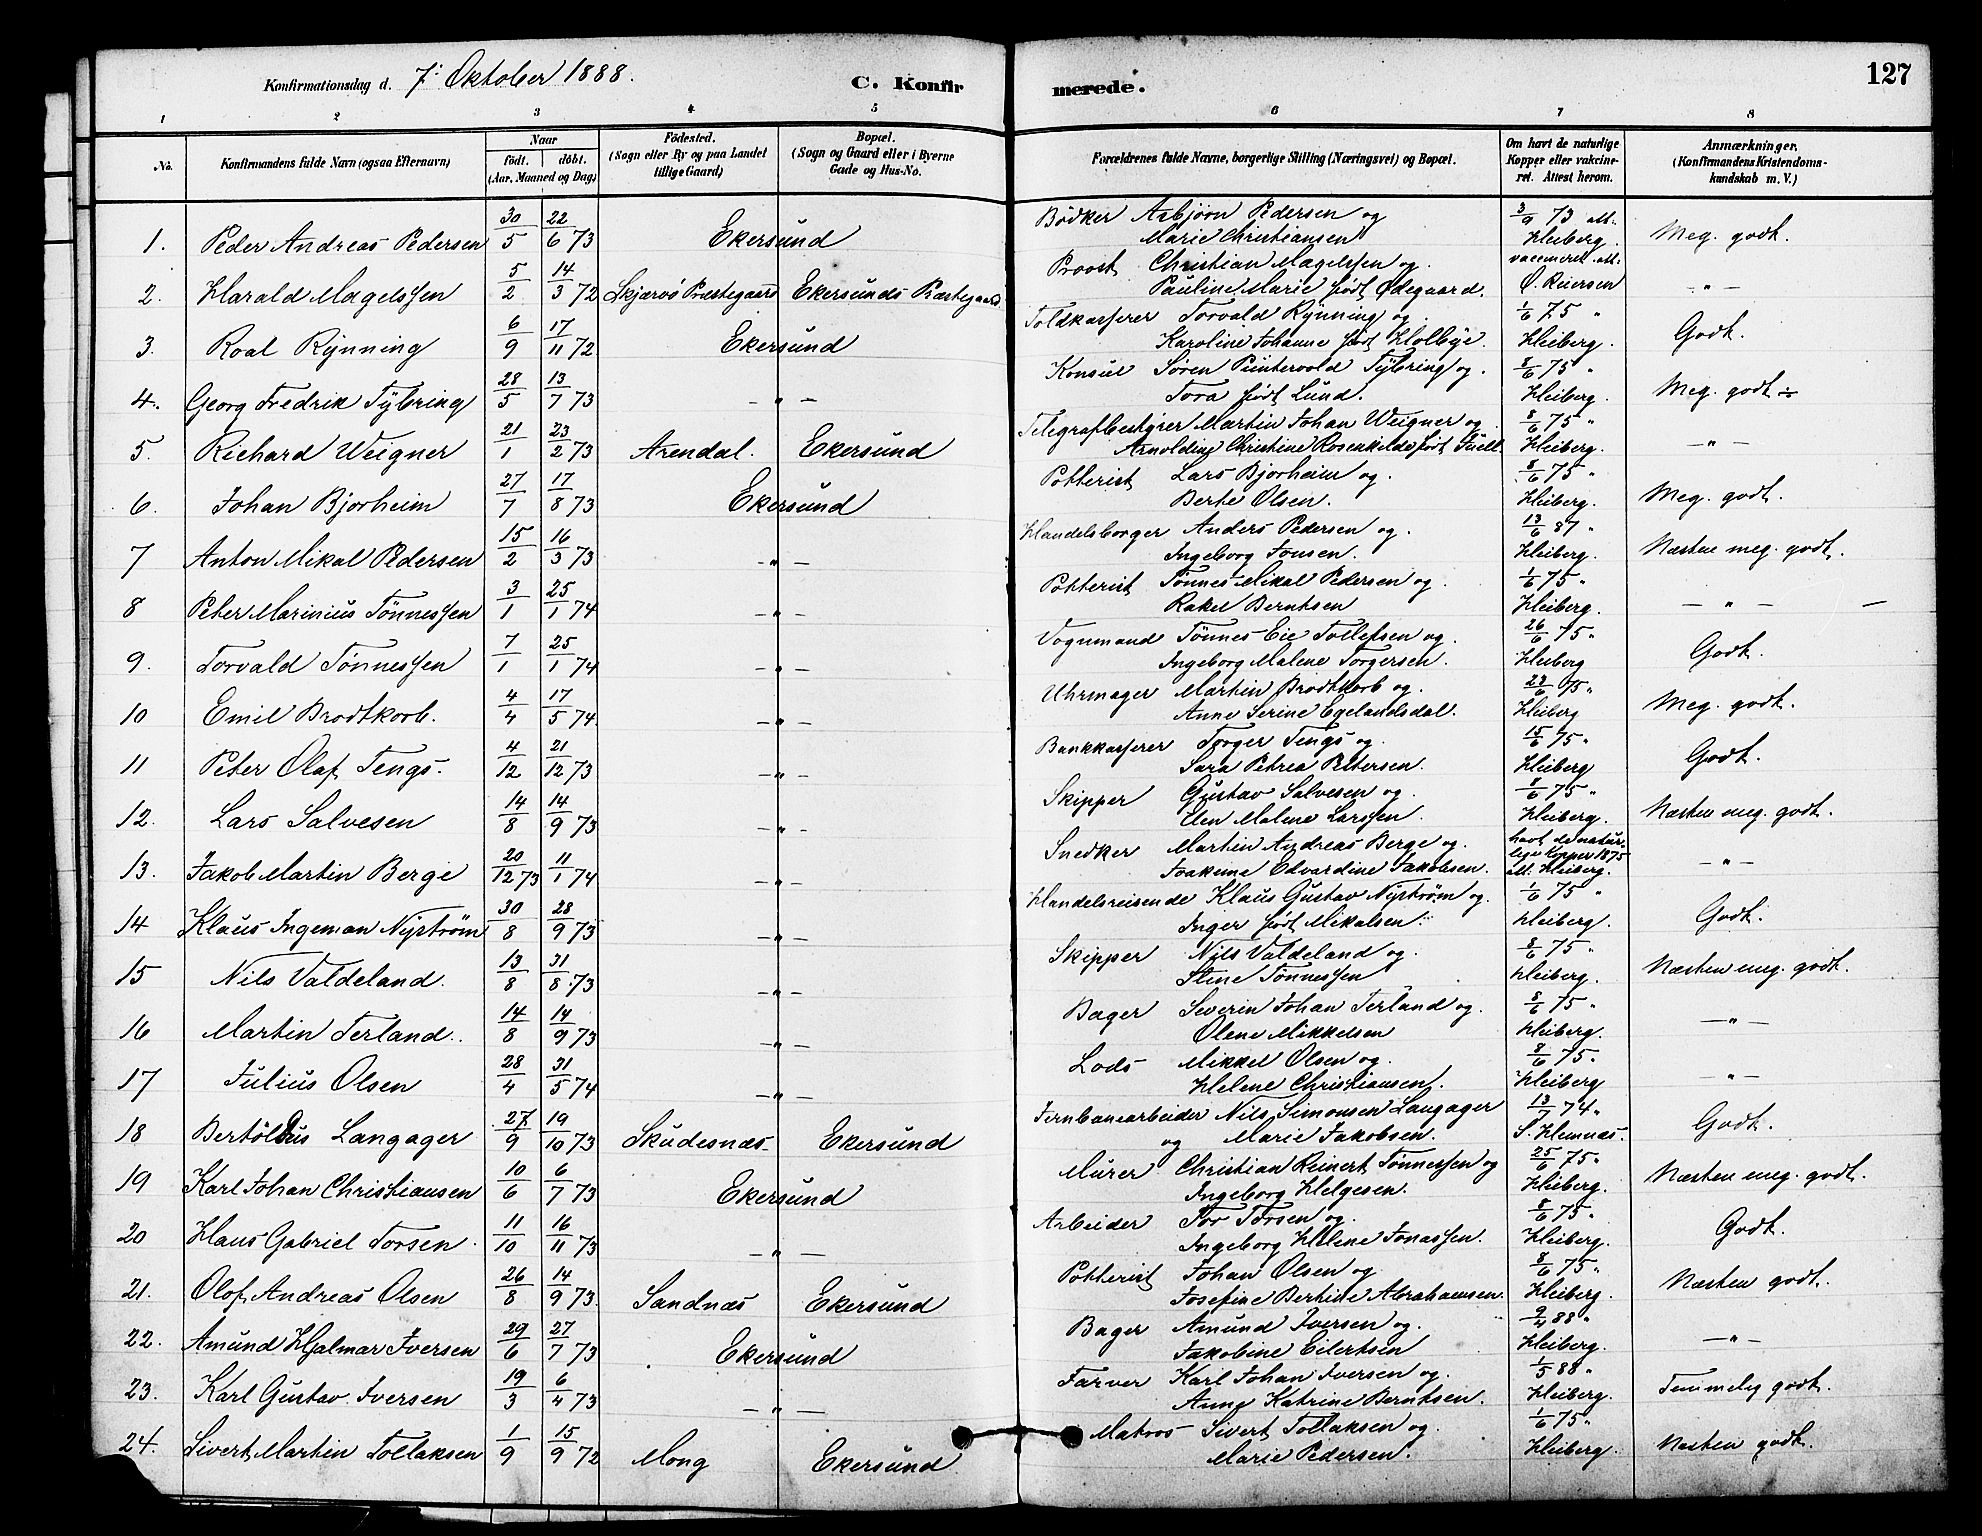 Konfirmationsdag d. 7' Oktober 1888.
C. Konfirmerede.
127
1 2 3 4 5 6 7 8
No.
Konfirmandens fulde Navn (ogsaa Efternavn)
Naar
født. døbt.
(Aar, Maaned og Dag)
Fødested.
(Sogn eller By og paa Landet
tillige Gaard)
Bopæl.
(Sogn og Gaard eller i Byerne
Gade og Hus-No.
Forældrenes fulde Navne, borgerlige Stilling (Næringsvei) og Bopæl.
Om havt de naturlige
Kopper eller vakcine-
ret. Attest herom.
Anmærkninger,
(Konfirmandens Kristendoms-
kundskab m. V.)
1. Peder Andreas Pedersen 30/5 22/6 73 Ekersund Bødker Asbjørn Pedersen og 3/9 73 att. Meg. godt.
Marie Christiansen Heiberg.
2. Harald Magelssen 5/2 14/3 72 Skjærvø Præstegaard Ekersunds Præstegaard Proost Christian Magelssen og vaccineret att: -"-
Pauline Marie født Ødegaard. O. Reiersen
3. Roal Rynning 6/9 17/11 72 Ekersund Toldkasserer Torvald Rynning og 1/6 75 " Godt.
Karoline Johanne født Holbye. Heiberg.
4. Georg Fredrik Tybring 28/5 13/7 73 -"- Konsul Søren Püntervold Tybring og 8/6 75 " Meg. godt ÷
Tora født Lund. Heiberg.
5. Richard Weigner 21/1 23/2 73 Arendal. Ekersund Telegrafbestyrer Martin Johan Weigner og 8/6 75 " -"-
Arnoldine Christine Rosenkilde født Heiberg.
6. Johan Bjorheim 27/7 17/8 73 Ekersund Potterist Lars Bjorheim og. 8/6 75 " Meg. godt.
Berte Olsen. Heiberg.
7 Anton Mikal Pedersen 15/2 16/3 73 -"- Handelsborger Anders Pedersen og. 13/6 87 " Næsten meg. godt.
Ingeborg Jonsen. Heiberg.
8 Peter Marinius Tönnessen 3/1 25/1 74 -"- Potterist Tønnes Mikal Pedersen og 1/6 75 " -"- -
Rakel Berntsen Heiberg.
9. Torvald Tønnessen 7/1 25/1 74 -"- Vognmand Tönnes Eie Tollefsen og. 26/6 75 " Godt.
Ingeborg Malene Torgersen. Heiberg
10 Emil Brodtkorb. 4/4 17/5 74 -"- Uhrmager Martin Brodtkorb og. 23/6 75 " Meg. godt.
Anne Serine Egelandsdal. Heiberg
11 Peter Olaf Tengs. 4/12 21/12 73 -"- Bankkasserer Torger Tengs og. 15/6 75 " Godt.
Sara Petrea Petersen. Heiberg
12. Lars Salvesen 14/8 14/9 73 -"- Skipper Gustav Salvesen og. 8/6 75 " Næsten meg. godt.
Elen Malene Larssen. Heiberg.
13. Jakob Martin Berge 20/12 73 11/1 74 -"- Snedker Martin Andreas Berge og. havt de natur- -"-
Joakime Edvardine Jakobsen. lige Kopper 1875
att. Heiberg.
14 Klaus Ingeman Nystrøm 30/8 28/9 73 -"- Handelsreisende Klaus Gustav Nystrøm og. 1/6 75 " Godt.
Inger født Mikalsen. Heiberg.
15 Nils Valdeland. 13/8 31/8 73 -"- Skipper Nils Valdeland og. 8/6 75 " Næsten meg. godt.
Stine Tønnessen Heiberg.
16 Martin Terland. 14/8 14/9 73 -"- Bager Severin Johan Terland og. 8/6 75 " -"-
Olene Mikkelsen Heiberg.
17 Julius Olsen 28/4 31/5 74 -"- Lods Mikkel Olsen og. 8/6 75. -"-
Helene Christiansen. Heiberg
18 Bertöldus Langager 27/9 19/10 73 Skudesnæs- Ekersund Jernbanearbeider Nils Simonsen Langager 13/7 74 " Godt.
og Marie Jakobsen. S. Hemnæs.
19 Karl Johan Christiansen 10/6 6/7 73 Ekersund Murer Christian Reinert Tønnessen og 25/6 75 " Næsten meg. godt.
Ingeborg Helgesen. Heiberg.
20 Hans Gabriel Torsen. 11/10 16/11 73 -"- Arbeider Tor Torsen og. 8/6 75 " Godt.
Ingeborg Helene Jonassen. Heiberg.
21. Olof Andreas Olsen 26/8 14/9 73. Sandnæs Ekersund Potterist Johan Olsen og 8/6 75 " Næsten godt.
Josefine Bertine Abrahamsen. Heiberg.
22. Amund Hjalmar Iversen 29/6 27/7 73 Ekersund Bager Amund Iversen og. 9/4 88 " -"-
Jakobine Eilertsen Heiberg.
23. Karl Gustav Iversen 19/3 6/4 73 -"- Farver Karl Johan Iversen og. 1/5 88 " Temmelig godt.
Anne Katrine Berntsen. Heiberg.
24. Sivert Martin Tollaksen 1/9 15/9 72 Mong Ekersund Matros Sivert Tollaksen og. 1/6 75 " Næsten godt.
Marie Pedersen. Heiberg.